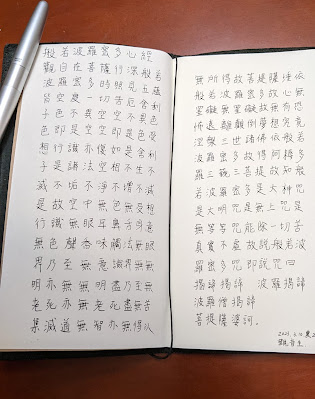 般若波羅蜜多心經
觀自在菩薩行深般若
波羅蜜多時照見五蘊
皆空度一切苦厄舍利
子色不異空空不異色
色即是空空即是色受
想行識亦復如是舍利
子是諸法空相不生不
滅不垢不淨不增不減
是故空中無色無受想
行識無眼耳鼻舌身意
無色聲香味觸法無眼
界乃至無意識界無無
明亦無無明盡乃至無
老死亦無老死盡無苦
集滅道無智亦無得以
無所得故菩提薩埵依
般若波羅蜜多故心無
罣礙無罣礙故無有恐
怖遠離顛倒夢想究竟
涅槃三世諸佛依般若
波羅蜜多故得阿耨多
羅三藐三菩提故知般
若波羅蜜多是大神咒
是大明咒是無上咒是
無等等咒能除一切苦
真實不虛故說般若波
羅蜜多咒即說咒曰
揭諦揭諦 波羅揭諦
波羅僧揭諦
菩提薩婆訶。